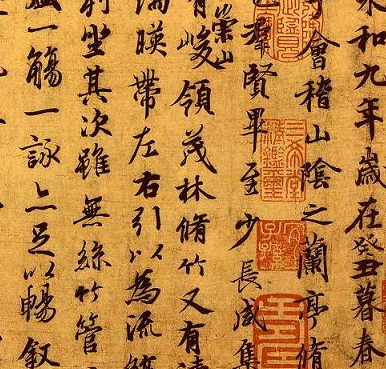 永和九年歲在癸丑暮春
會稽山陰之蘭亭脩
也群賢畢至少長咸集
有崇山峻領茂林脩竹又有清
湍暎帶左右引以為流觴
列坐其次雖無絲竹管
盛一觴一詠亦足以暢敘